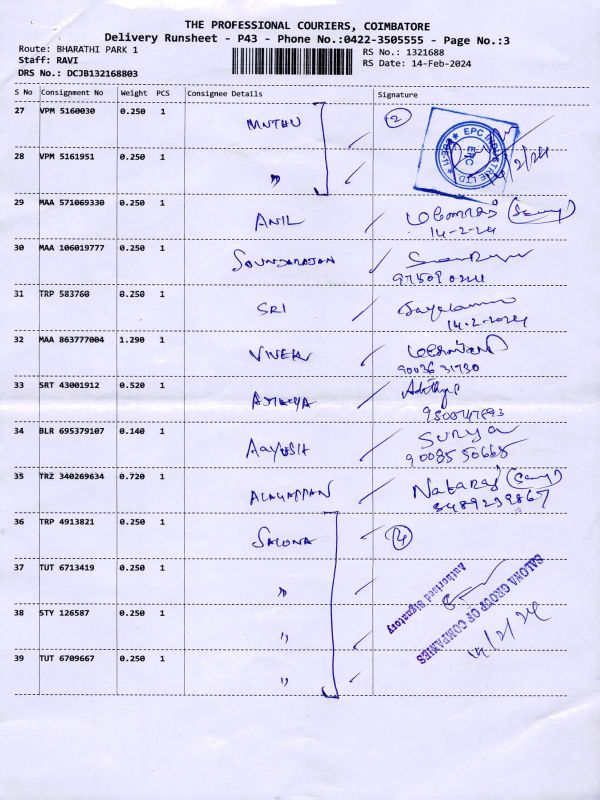 THE PROFESSIONAL COURIERS, COIMBATORE
Delivery Runsheet - P43 - Phone No.:0422-3505555 - Page No.:3
Route: BHARATHI PARK 1
RS No.: 1321688
Staff: RAVI
RS Date: 14-Feb-2024
DRS No.: DCJB132168803
S No Consignment No Weight PCS Consignee Details Signature
27 VPM 5160030 0.250 1 2
EPC INDUSTRIE LTD
EPC
28 VPM 5161951 0.250 1 "
29 MAA 571069330 0.250 1 ANIL
14-2-24
30 MAA 106019777 0.250 1 SOUNDARAJAN
31 TRP 583760 0.250 1 SRI
14-2-2024
32 MAA 863777004 1.290 1 VIVEK
90036 31730
33 SRT 43001912 0.520 1
34 BLR 695379107 0.140 1 AAYUSH Surya
90085 50668
35 TRZ 340269634 0.720 1 ALAGAPPAN Nataraj
8489239867
36 TRP 4913821 0.250 1 SALONA 4
37 TUT 6713419 0.250 1 "
SALONA GROUP OF COMPANIES
Authorised Signatory
14/2/24
38 STY 126587 0.250 1 "
39 TUT 6709667 0.250 1 "